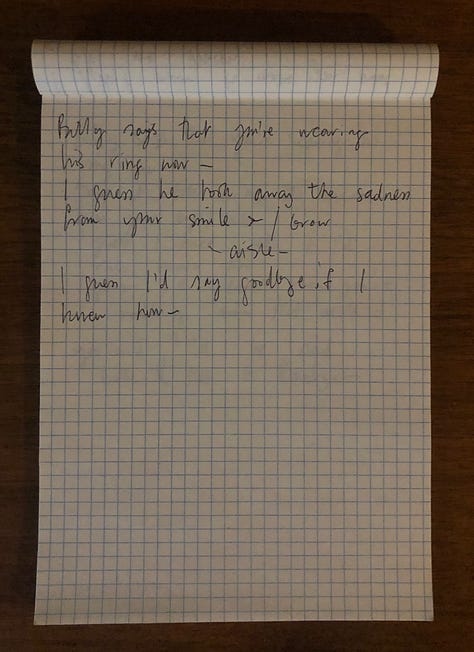 Billy says that you're wearing
his ring now –
I guess he took away the sadness
from your smile x / brow
– aisle –
I guess I'd say goodbye if I
knew how –